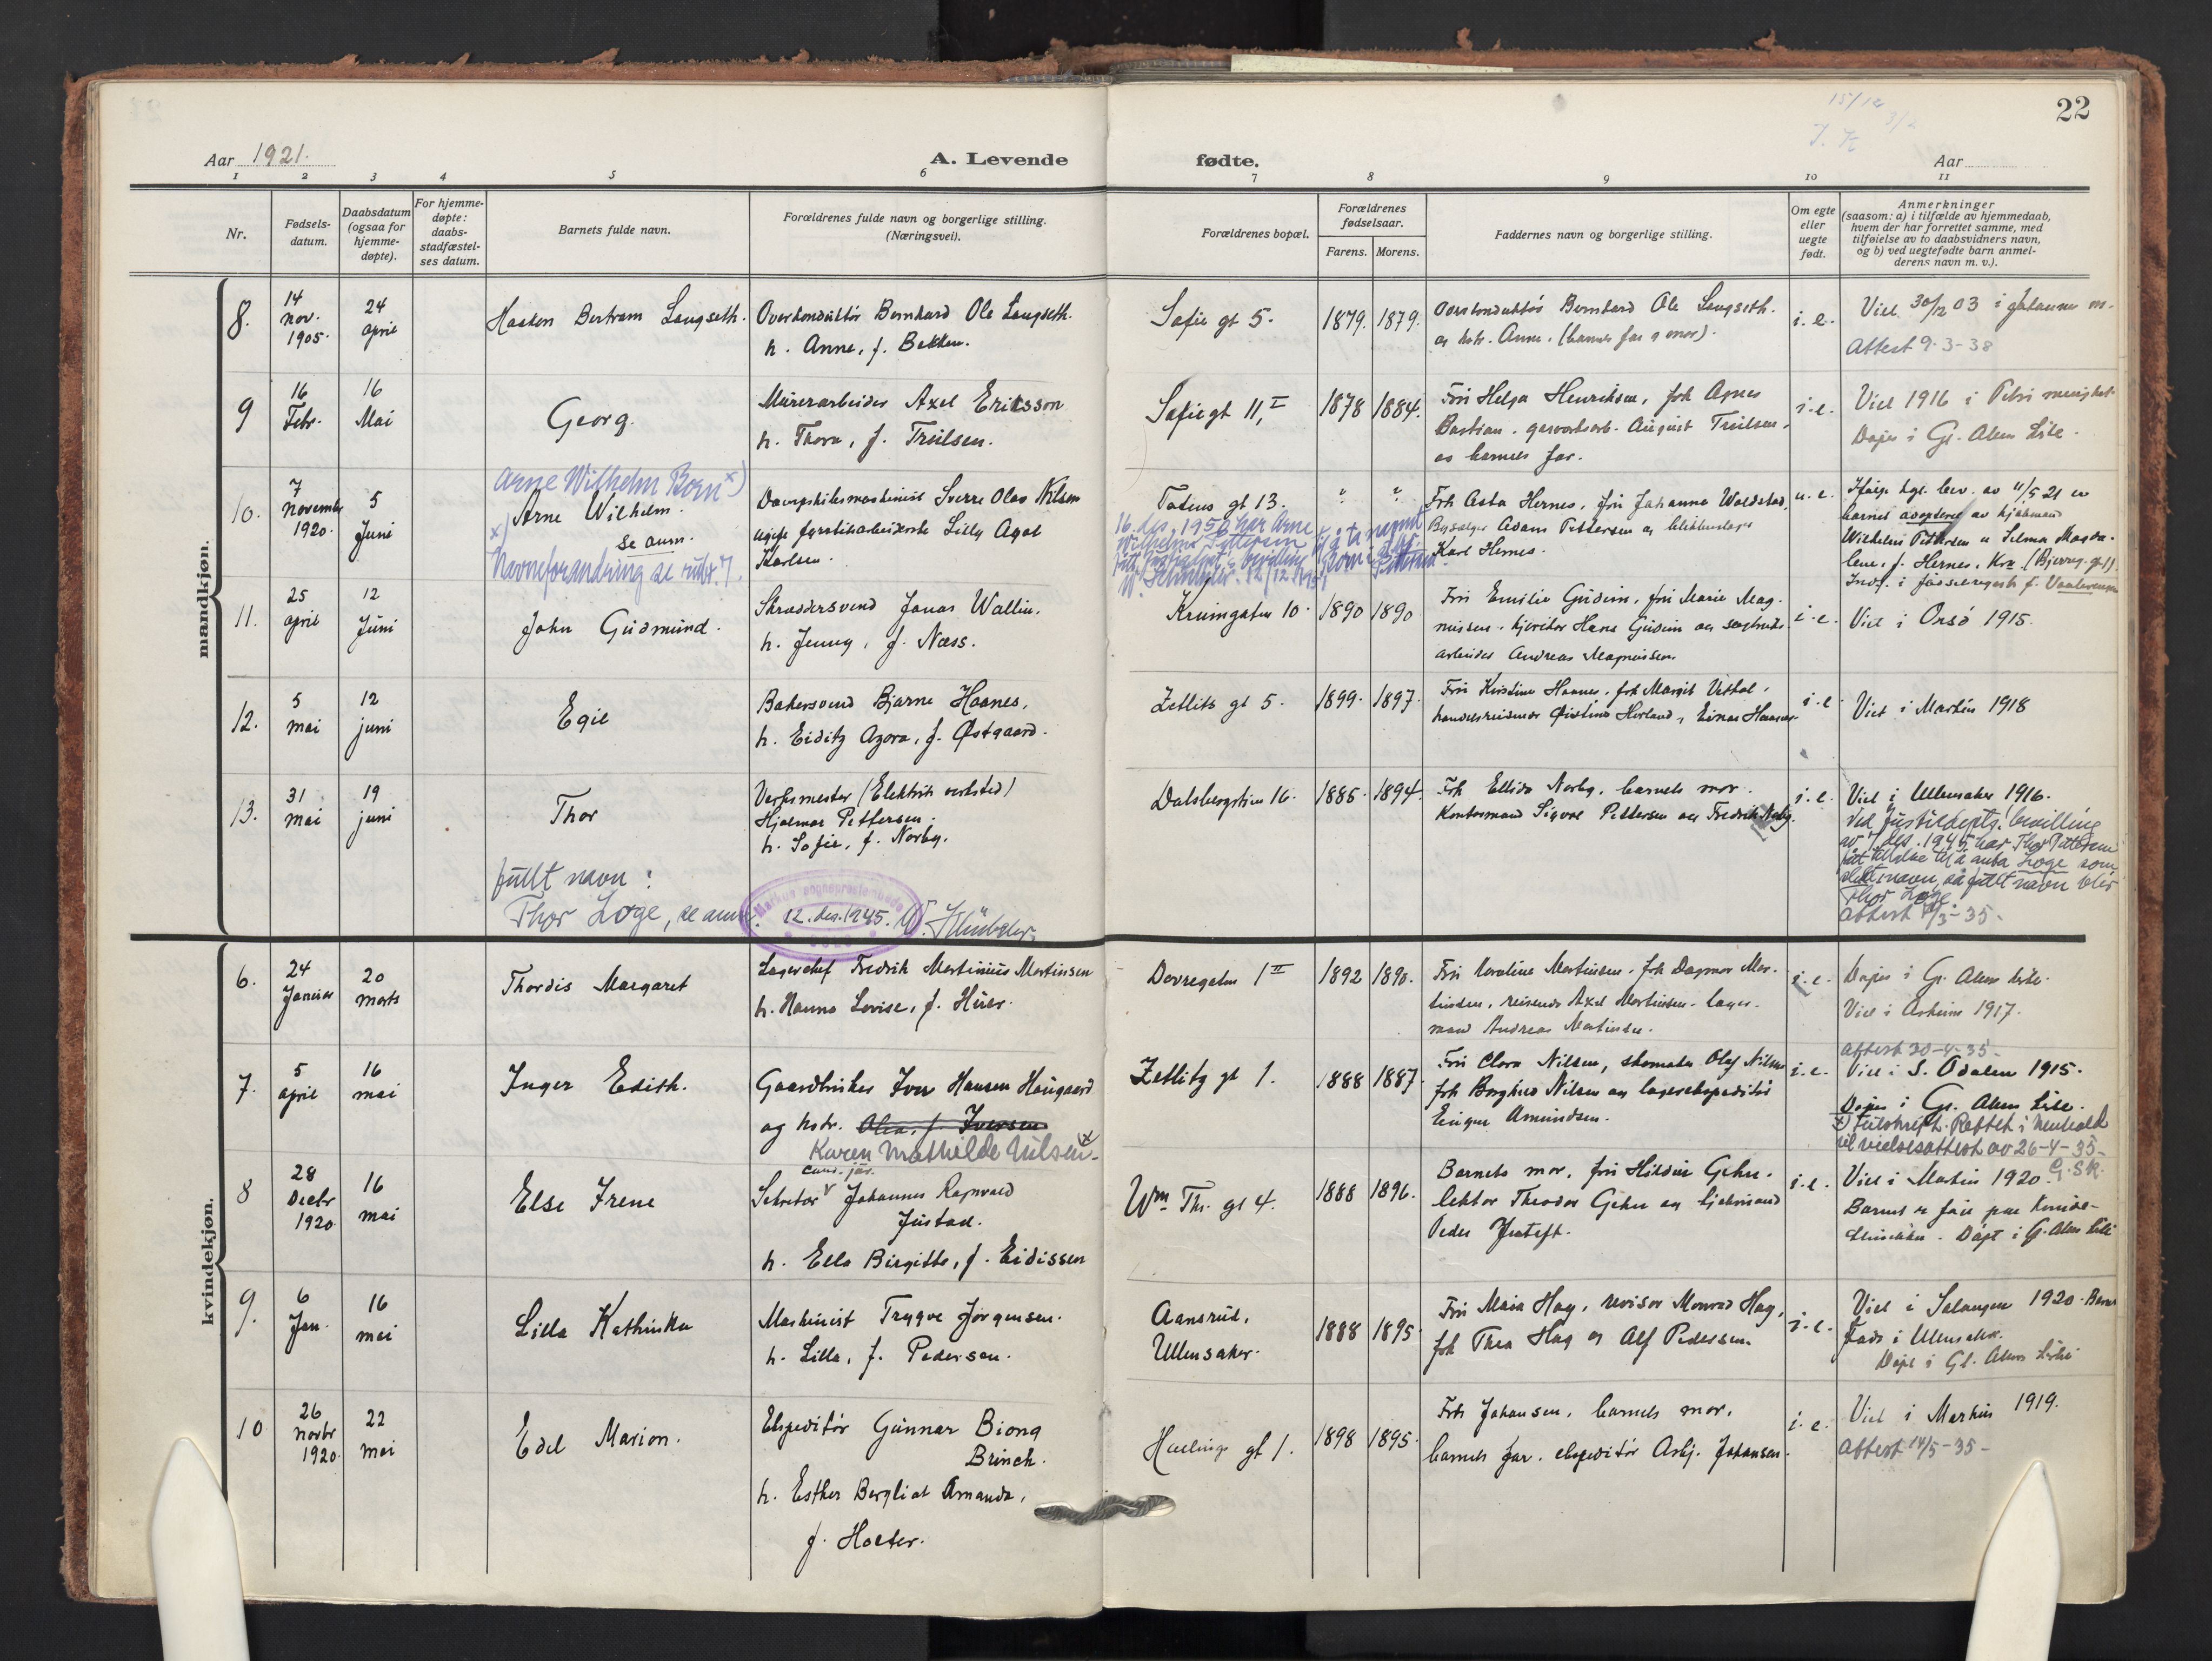 15/12
3/2
22
Aar 1921.
A. Levende
fødte.
Aar
1 2 3 4 5 6 7 8 9 10 11
Nr.
Fødsels-
datum.
Daabsdatum
(ogsaa for
hjemme-
døpte).
For hjemme-
døpte:
daabs-
stadfæstel-
ses datum.
Barnets fulde navn.
Forældrenes fulde navn og borgerlige stilling.
(Næringsvei).
Forældrenes bopæl.
Forældrenes
fødselsaar.
Farens. Morens.
Faddernes navn og borgerlige stilling.
Om egte
eller
uegte
født.
Anmerkninger
(saasom: a) i tilfælde av hjemmedaab,
hvem der har forrettet samme, med
tilføielse av to daabsvidners navn,
og b) ved uegtefødte barn anmel-
derens navn m. v.).
mandkjøn.
8.
14
nov.
1905.
24
april
Haakon Bertram Langseth.
Overkonduktör Bernhard Ole Langseth.
h. Anne, f. Bakken.
Sofie gt 5.
1879. 1879.
Overkonduktör Bernhard Ole Langseth.
og hstr. Anne. (barnets far og mor).
i. e.
Viet 30/12 03 i Johannes m.
Attest 9-3-38
9
16
Febr.
16
Mai
Georg.
Murerarbeider Axel Ericsson
h. Thora, f. Truilsen.
Sofiegt 11, I
1878 1884.
Fru Helga Henriksen, frk Agnes
Bastian. garverarb. August Truilsen.
og barnets far.
i. e.
Viet 1916 i Petri menighet.
Døpt i Gl. Akers kirke.
10.
7
November
1920.
5
Juni
Arne Wilhelm Born x)
Arne Wilhelm.
se anm.
x)
Navneforandring se rubr. 7.
Dampskibsmaskinist Sverre Olav Nilsen
ugift fabrikarbeiderske Lilly Agot
Karlsen.
gt 13.
16. des. 1950 har Arne
Wilhelm Pettersen
" "
Frk Asta Hernes, fru Johanna Waldstad,
Adam Pettersen og blikkenslager
Karl Hernes.
u. e.
Ifølge kgl. bev. av 11/5 21 er
barnet adopteret av
Wilhelm Pettersen og Selma Magda-
lene, f. Hernes, Kra
11.
25
april
12
Juni
John Gudmund.
Skræddersvend Jonas Wallin.
h. Jenny, f. Næss.
Krumgaten 10
1890 1890
Fru Emilie Gudim, fru Marie Mag-
nussen. Hans Gudim og
arbeider Andreas Magnussen.
i. e.
Viet i Onsö 1915.
12.
5
mai
12
juni
Egil
Bakersvend Bjarne Haanes,
h. Eiditz Azora, f. Østgaard.
Zetlitz gt 5.
1899. 1897.
Fru Kirstine Haanes. frk Margit
handelsreisende Herland, Einar Haanes.
i. e.
Viet i Markus 1918
13.
31
mai
19
juni
Thor
Verksmester (Elektrik verksted)
Hjalmar Pettersen.
h. Sofie, f. Norby.
Dalsbergstien 16.
1885. 1894.
Frk Ellida Norby, barnets mor.
Kontormand Sigval Pettersen og Fredrik Norby.
i. e.
Viet i Ullensaker 1916.
Ved Justisdepts. bevilling
av 7. des. 1945 har Thor Pettersen
fått tillatelse til å anta Loge som
slektsnavn, så fullt navn blir
Thor Loge.
attest /3-35-
fullt navn:
Thor Loge, se anm.
Markus sogneprestembede
12. des. 1945.
OSLO
kvindekjøn.
6.
24
Januar
20
marts
Thordis Margaret
Lagerchef Fredrik Martinius Martinsen
h. Hanna Lovise, f.
Dovregaten 1 II
1892 1890.
Fru Karoline Martinsen. frk Dagmar Mar-
tinsen, reisende Axel Martinsen. lager-
mand Andreas Martinsen.
i. e.
Døpt i Gl. Akers kirke.
Viet i Askim 1917.
attest 30-4-35-
7.
5
april
16
mai
Inger Edith.
Gaardbruker Iver Hansen Haugaard
og hstr. Olea, f. Iversen
Karen Mathilde Nilsen x
Zetlitz gt 1.
1888 1887
Fru Clara Nilsen, skomaker Olaf Nilsen
frk Borghild Nilsen og lagerekspeditör
Amundsen.
i. e.
Viet i S. Odalen 1915.
Døpt i Gl. Akers kirke.
Rettet i henhold
til vielsesattest av 26-4-35-
G. SR.
8
28
Decbr
1920.
16
mai
Else Irene
cand. jur.
Sekretær Johannes Ragnvald
Justad.
h. Ella Birgitte, f. Eidissen
Wm Th. gt 4.
1888 1896.
Barnets mor, fru Hildur Gehn.
lektor Theodor Gehn og
Peder
i. e.
Viet i Markus 1920.
Barnet er født paa Kvinde-
klinikken. Døpt i Gl. Akers kirke
9.
6
Jan.
16
mai
Lilla Kathinka
Maskinist Trygve Jørgensen.
h. Lilla, f. Pedersen.
Aansrud,
Ullensaker.
1888 1895
Fru Maia Hag, revisor Monrad Hag,
frk Thea Hag og Alf Pedersen.
i. e.
Viet i Salangen 1920. Barnet
født i Ullensaker.
Døpt i Gl. Akers kirke
10
26
Novbr
1920.
22
mai
Edel Marion.
Ekspeditör Gunnar Biong
Brinch.
h. Esther Bergliot Amanda,
f. Holter.
gt 1.
1898 1895.
Frk Johansen, barnets mor,
barnets far, ekspeditör Asbj. Johansen.
i. e.
Viet i Markus 1919.
attest 14/5-35-